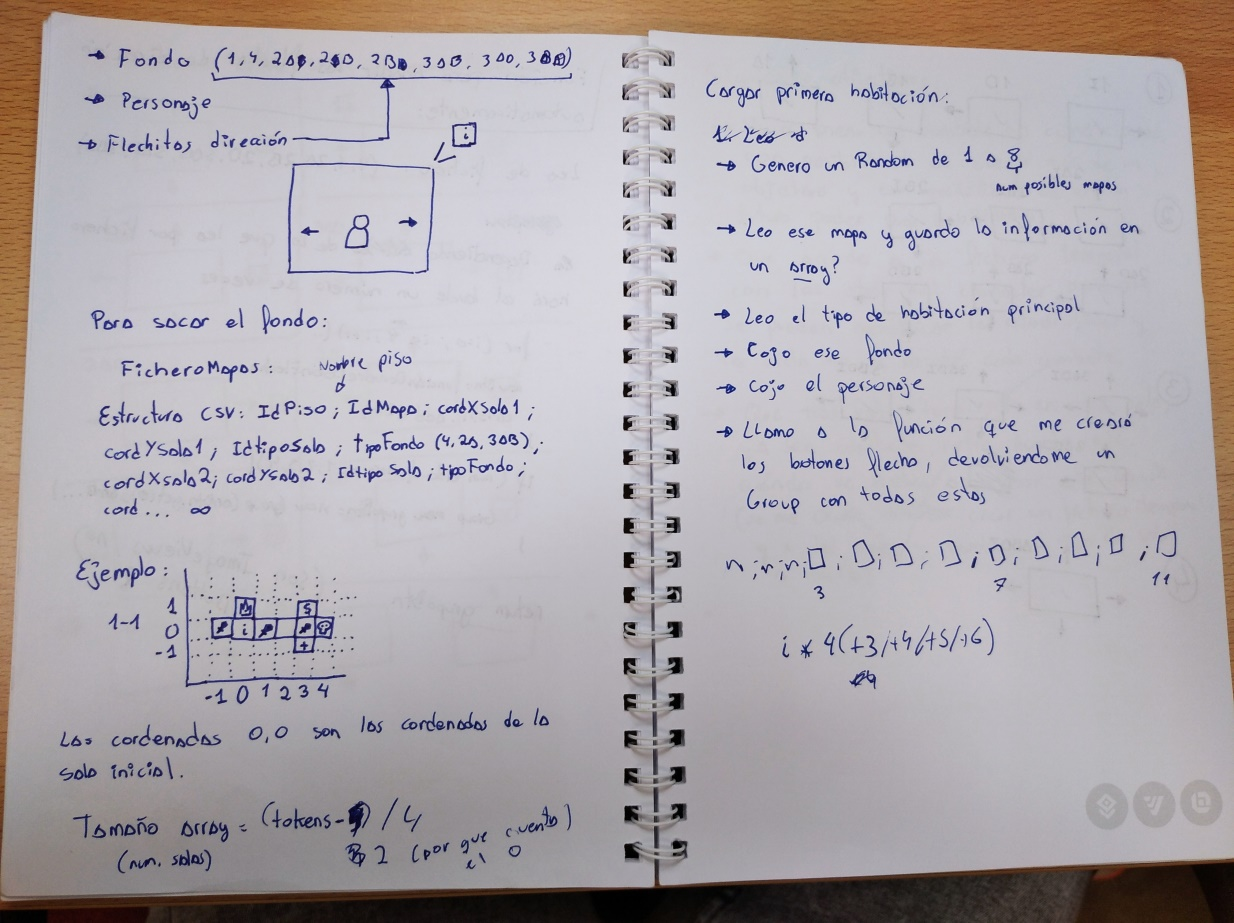 → Fondo (1, 4, 2ΔB, 2BD, 2BD, 3ΔB, 3ΔD, 3BD)
→ Personaje
→ Flechitas direción
i
Para sacar el fondo:
FicheroMapas: Nombre piso
Estructura CSV: IdPiso; IdMapa; cordXSala1;
cordYSala1; IdtipoSala; tipoFondo (4, 2Δ, 3ΔB);
cordXsala2; cordYSala2; IdtipoSala; tipoFondo;
cord... ∞
Ejemplo:
1-1
1
0
-1
i
-1 0 1 2 3 4
Las cordenadas 0,0 son las cordenadas de la
sala inicial.
Tamaño array = (tokens-) / 4
(num. salas)
2 (por que cuenta
el 0)
Cargar primera habitación:
→ Genero un Random de 1 a 8
num posibles mapas
→ Leo ese mapa y guardo la información en
un array?
→ Leo el tipo de habitación principal
→ Cojo ese fondo
→ Cojo el personaje
→ Llamo a la función que me creará
los botones flecha, devolviendome un
Group con todas estas
n;n;n;□;□;□;□;□;□;□;□;□
3 7 11
i * 4(+3/+4/+5/+6)